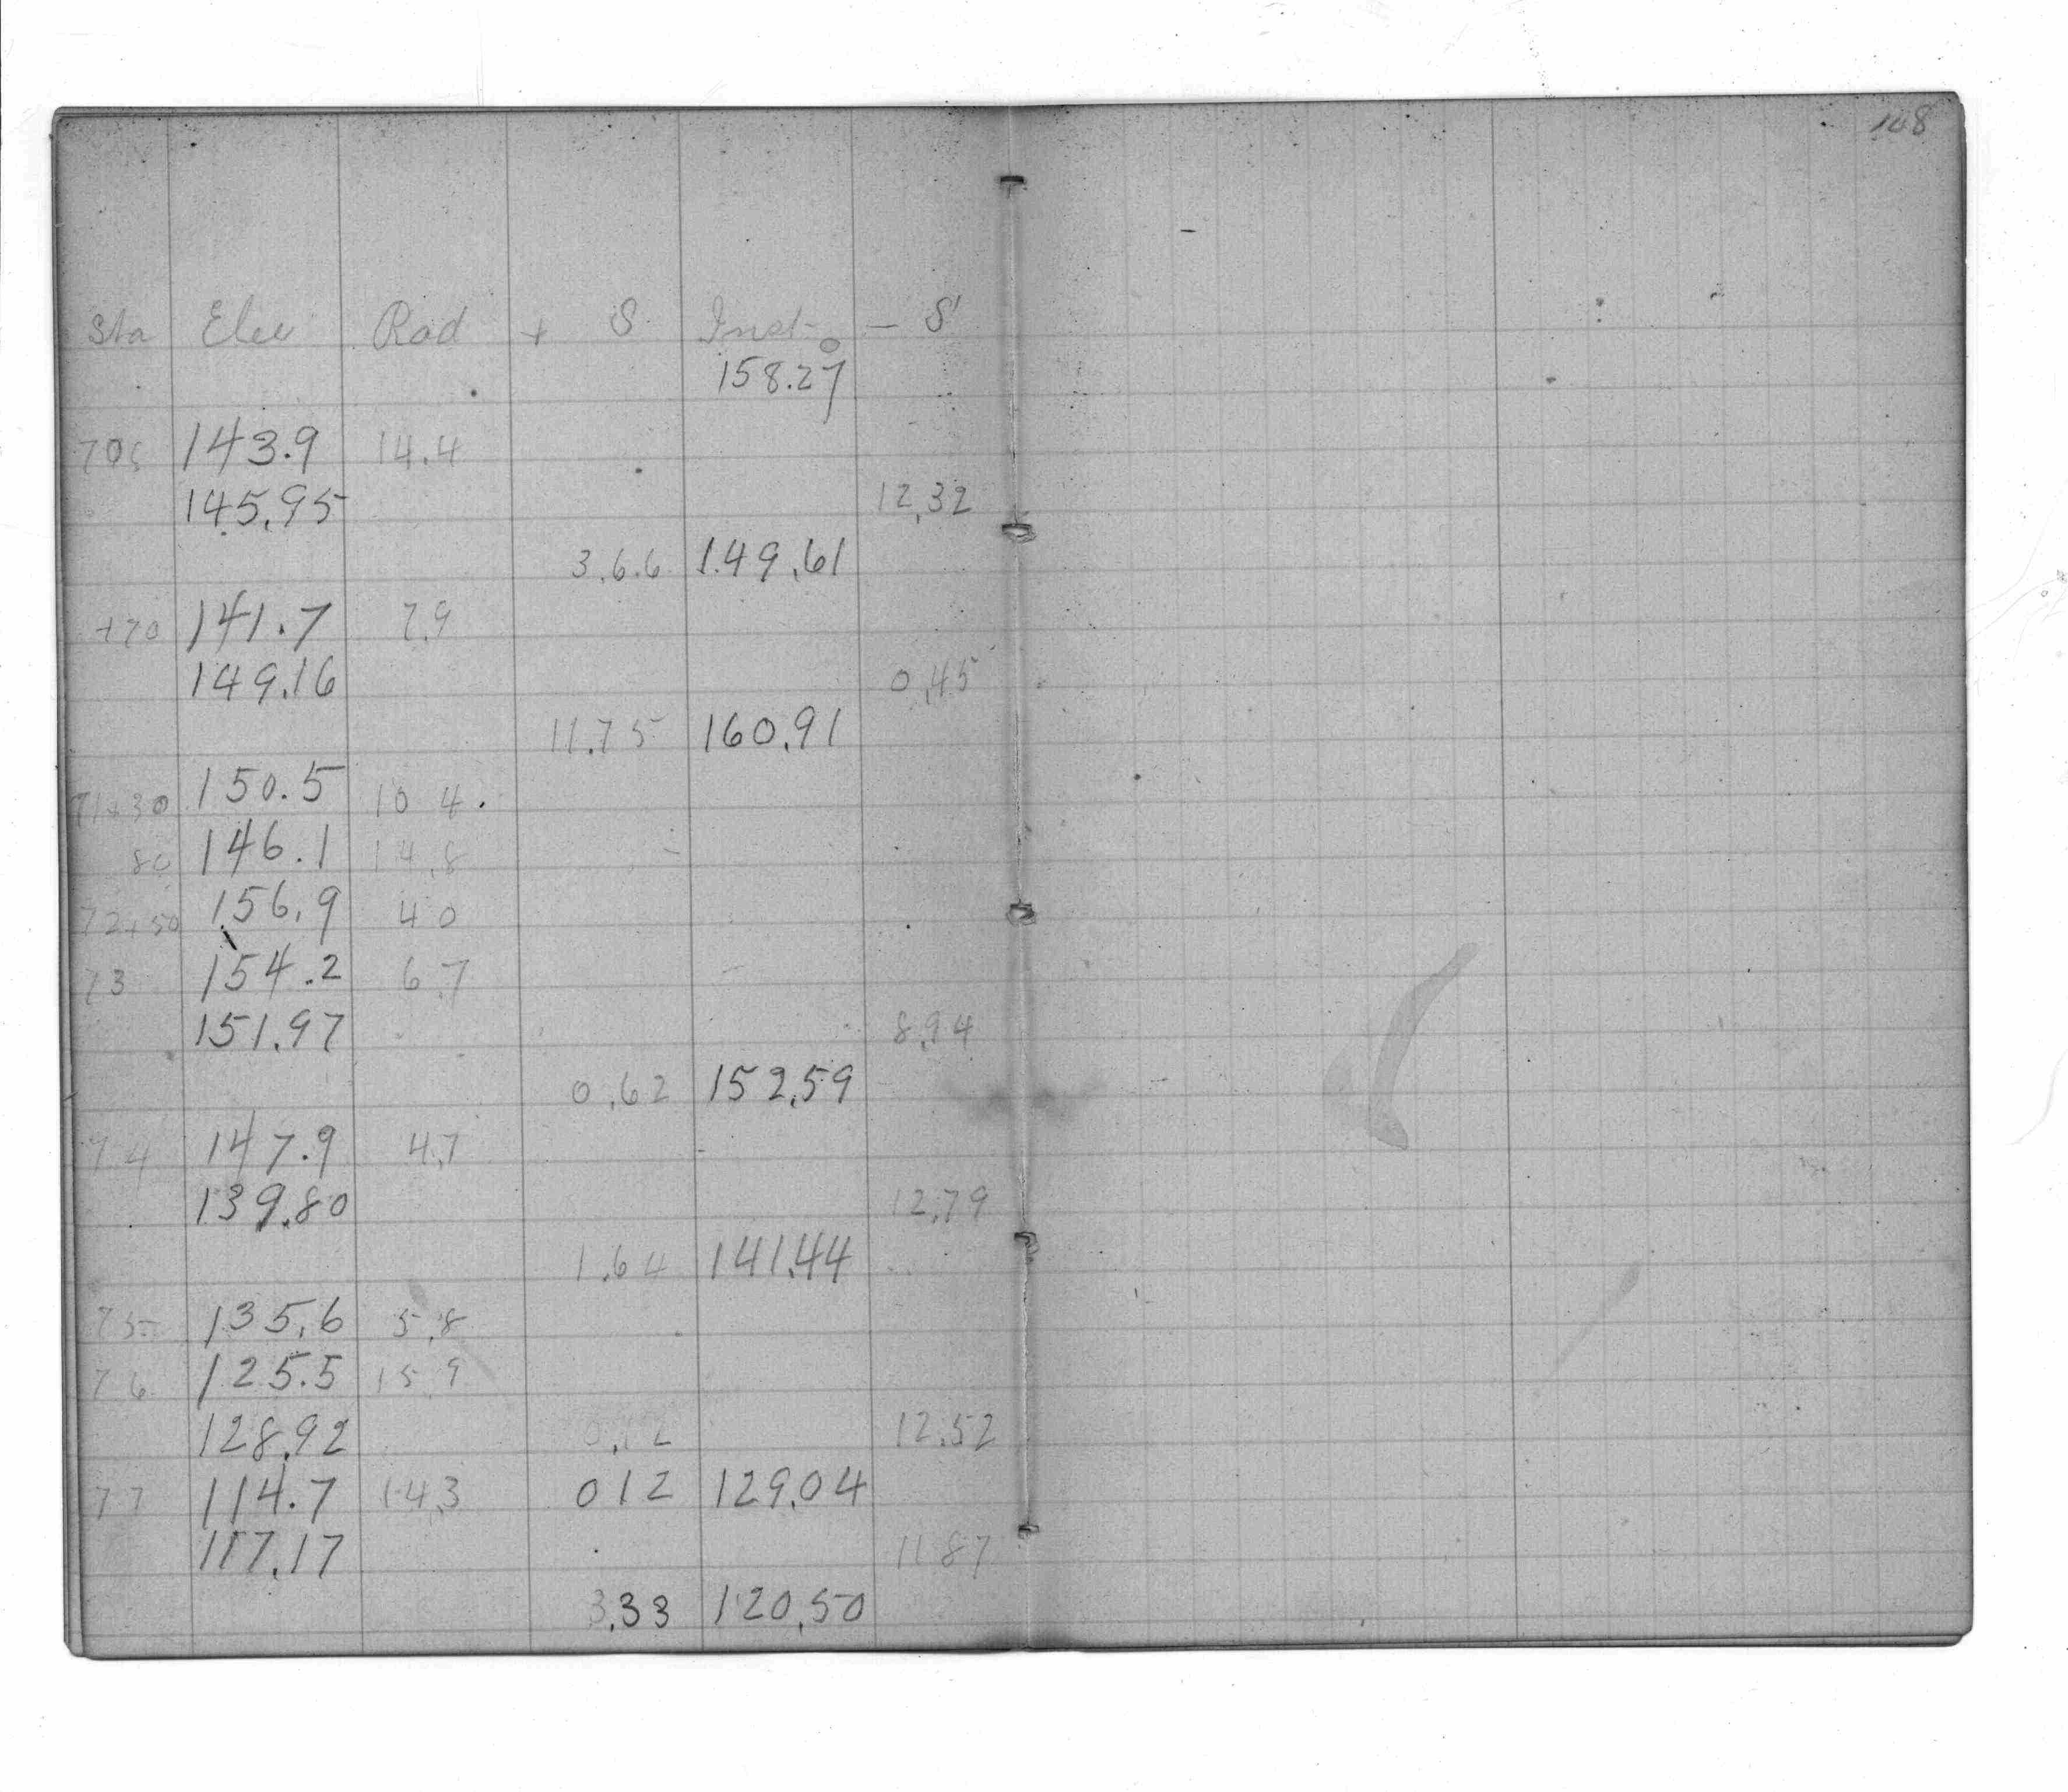 108
Sta Elev Rod + S Inst. - S
158.27
705 143.9 14.4
145.95 12.32
3.66 149.61
+70 141.7 7.9
149.16 0.45
11.75 160.91
71+30 150.5 10 4.
80 146.1 14.8
72+50 156.9 4 0
73 154.2 6.7
151.97 8.94
0.62 152.59
74 147.9 4.7
139.80 12.79
1.64 141.44
75 135.6 5.8
76 125.5 15.9
128.92 0.12 12.52
77 114.7 14.3 0 12 129.04
117.17 11 87
3.33 120.50